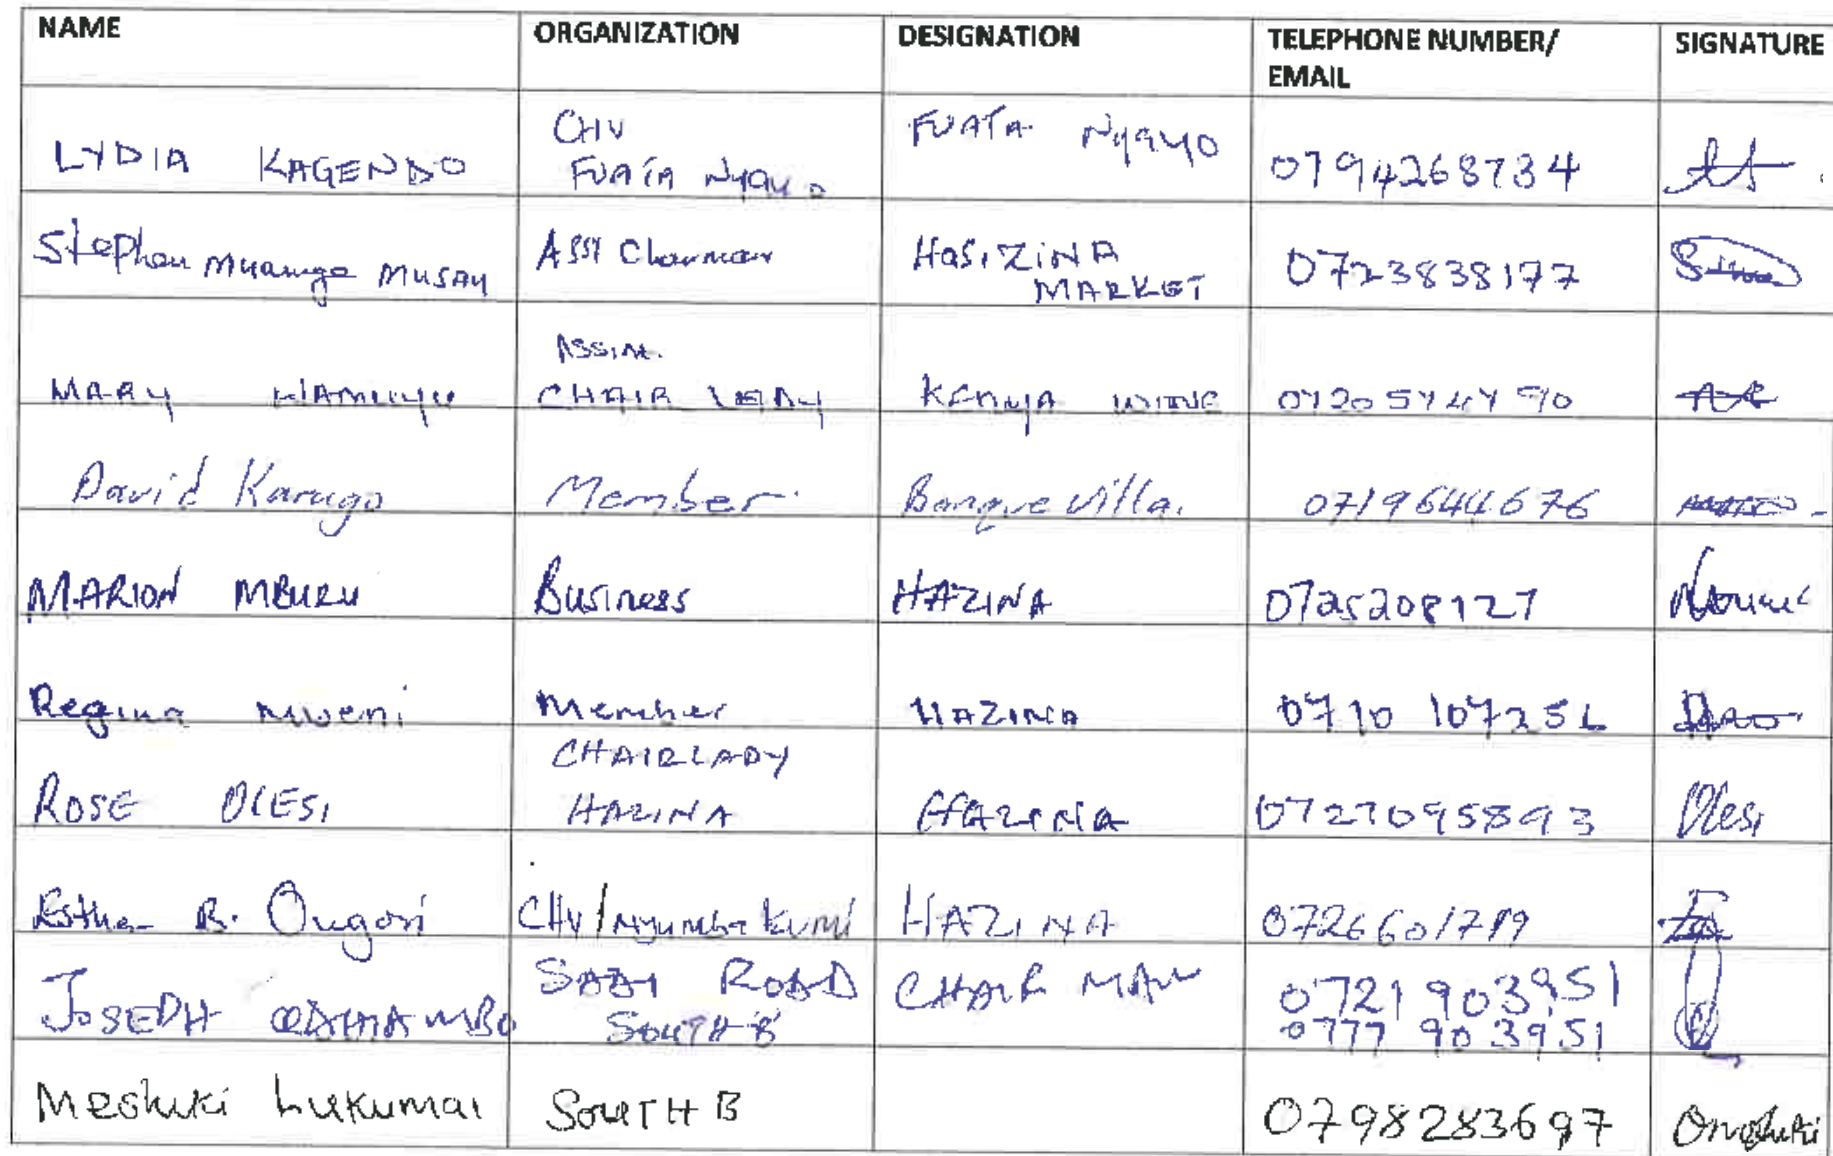 NAME ORGANIZATION DESIGNATION TELEPHONE NUMBER/ EMAIL SIGNATURE
LYDIA KAGENDO CHV FUATA NYAYO FUATA NYAYO 0794268734
Stephen MUSAU ASST Chairman HaSiZiNA MARKET 0723838177
MARY WAMUYU ASSIM. CHAIR LEADY KENYA
David Karugo Member. Banque Villa. 0719644676
MARION MBURU Business HAZINA 0725208127
Regina Mweni Member HAZINA
ROSE OLESI CHAIRLADY HAZINA HAZINA 0727095893 Olesi
Esther B. Ongori CHV/Nyumba kumi HAZINA
JOSEPH ODHIAMBO ROAD SOUTH B CHAIR MAN 0721 903951 0777 903951
Meshuki Lukumai SOUTH B 0798283697